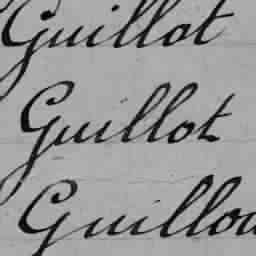 Guillot
Guillot
Guillou